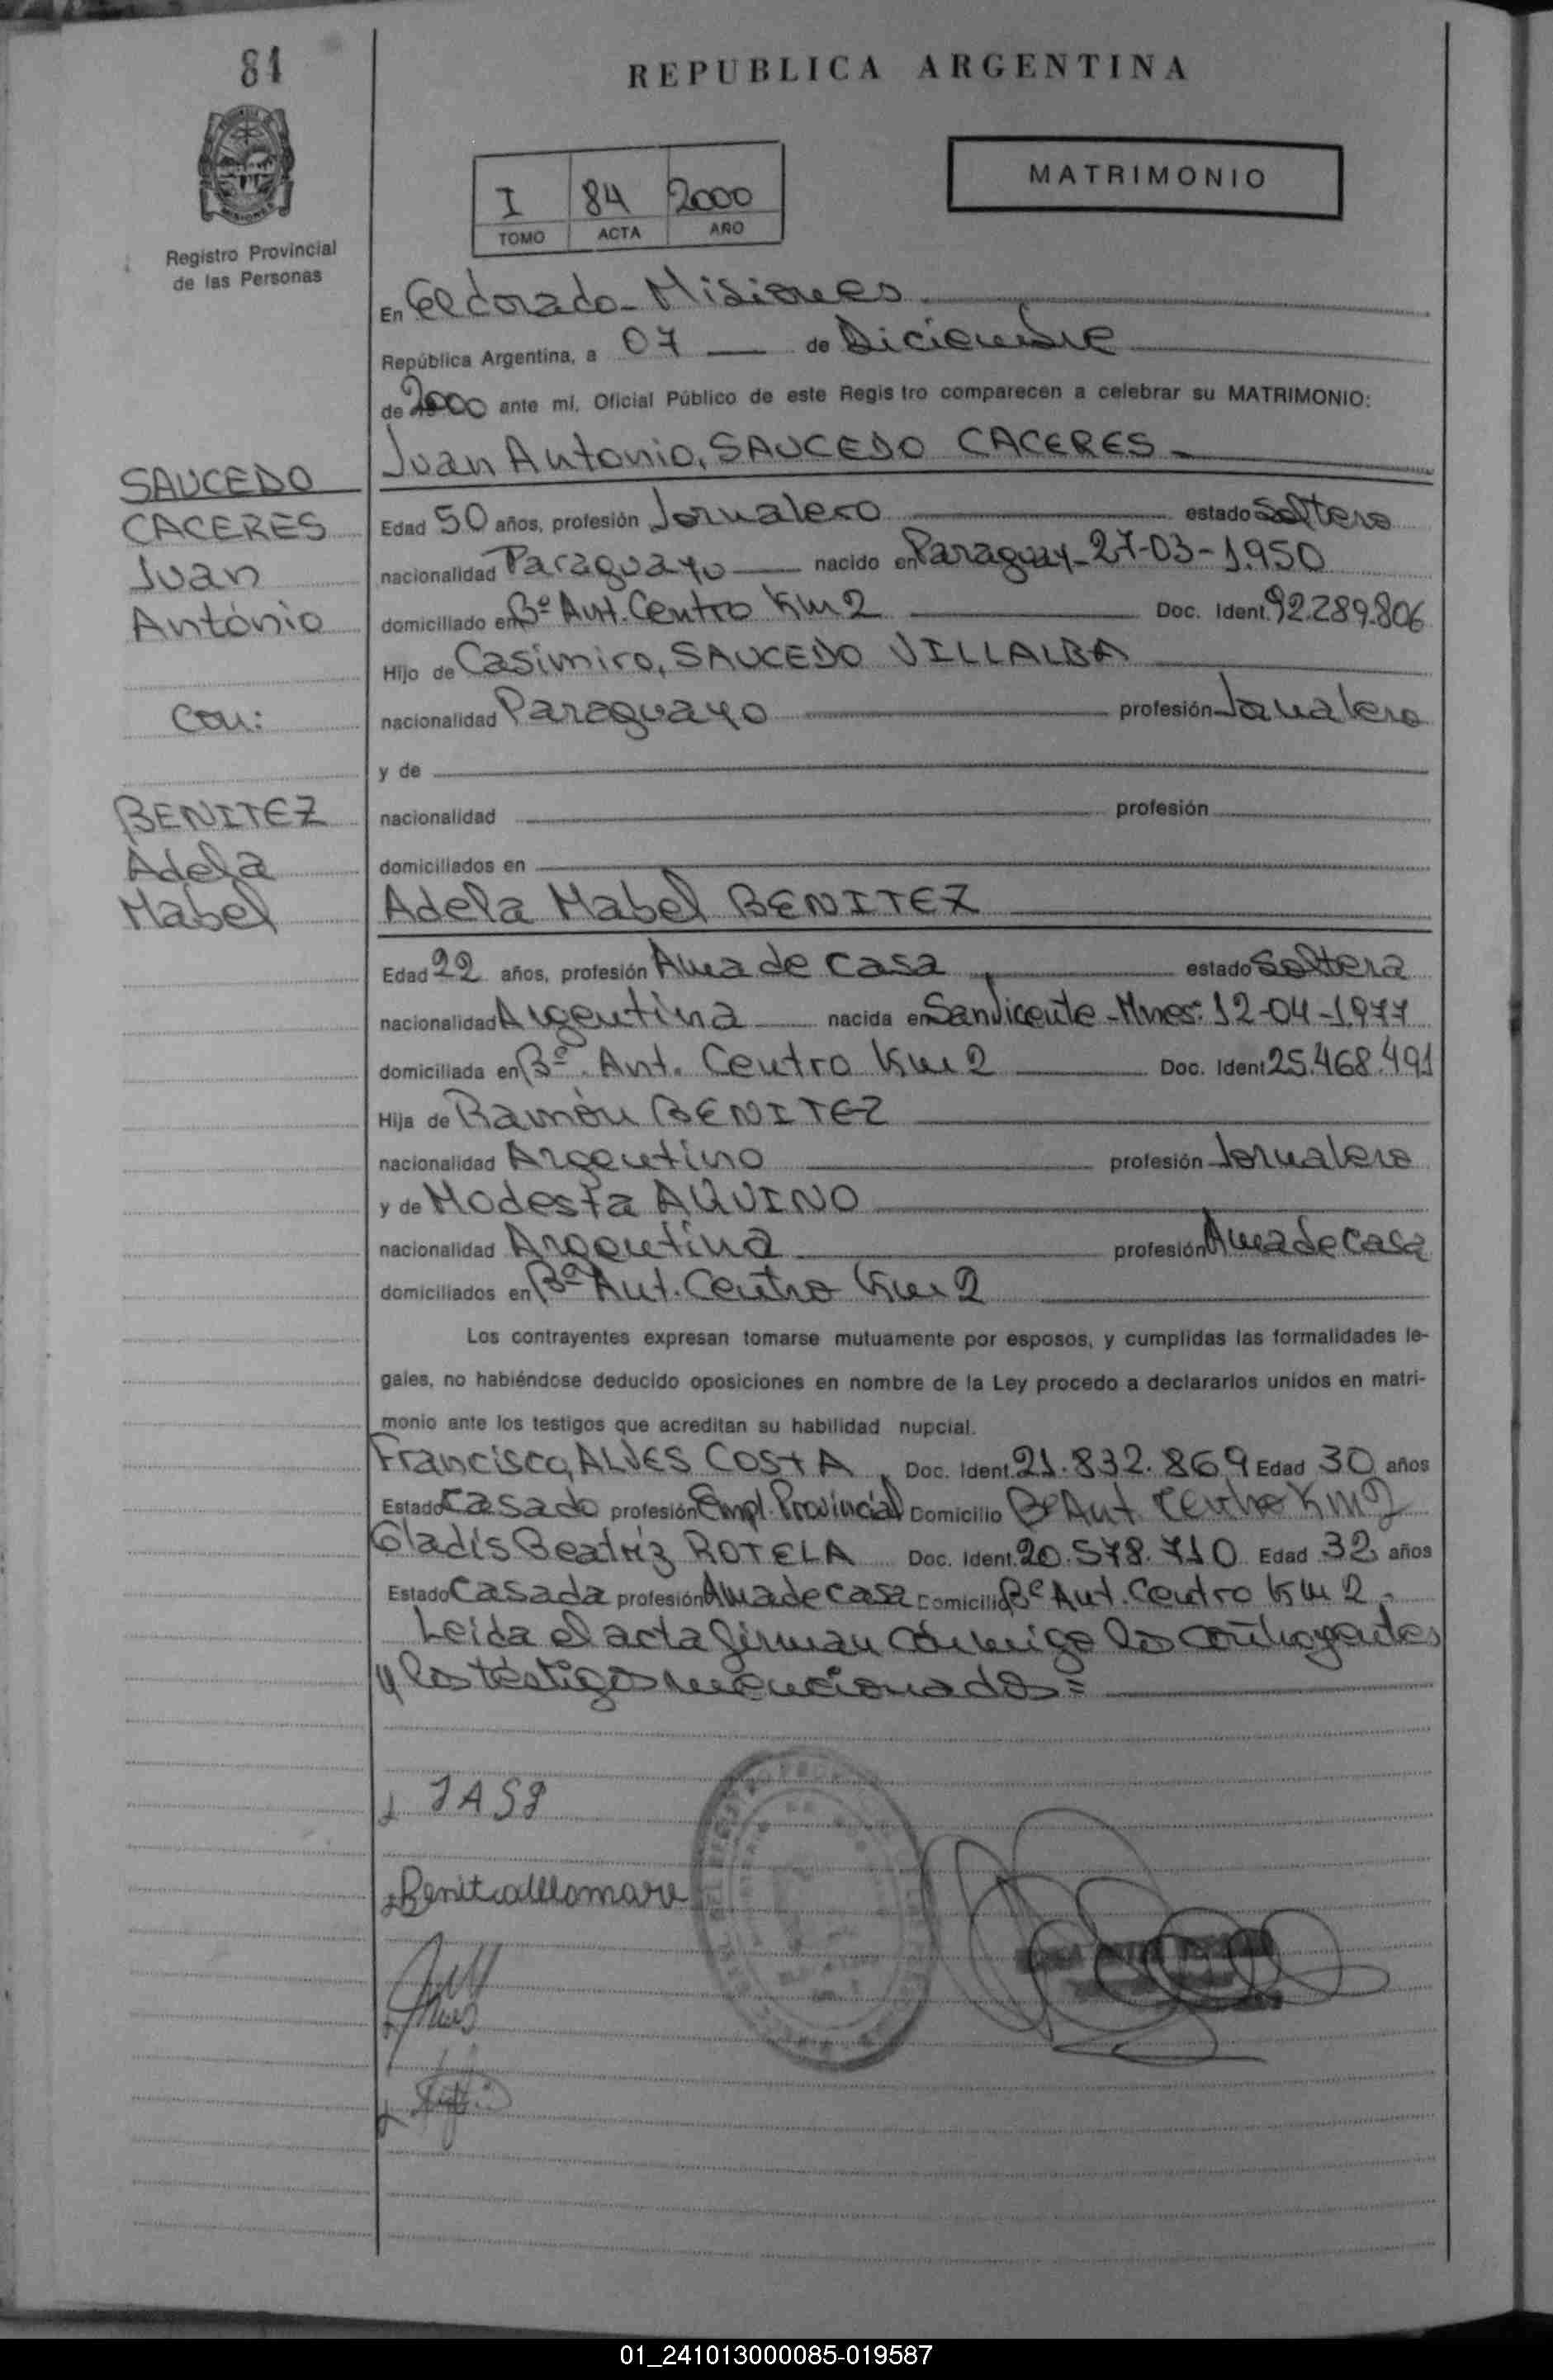 81
REPUBLICA ARGENTINA
MISIONES
Registro Provincial
de las Personas
I 84 2000
TOMO ACTA AÑO
MATRIMONIO
En Eldorado - Misiones
República Argentina, a 07 de Diciembre
de 2000 ante mi, Oficial Público de este Regis tro comparecen a celebrar su MATRIMONIO:
SAUCEDO
CACERES
Juan
Antonio
con:
BENITEZ
Adela
Mabel
Juan Antonio, SAUCEDO CACERES
Edad 50 años, profesión Jornalero estado Soltero
nacionalidad Paraguayo nacido en Paraguay - 27-03-1.950
domiciliado en Bº Ant. Centro Km 2 Doc. Ident. 92.289.806
Hijo de Casimiro, SAUCEDO VILLALBA
nacionalidad Paraguayo profesión Jornalero
y de
nacionalidad profesión
domiciliados en
Adela Mabel BENITEZ
Edad 22 años, profesión Ama de casa estado Soltera
nacionalidad Argentina nacida en San Vicente - Mnes: 12-04-1.977
domiciliada en Bº. Ant. Centro Km 2 Doc. Ident 25.468.491
Hija de Ramón BENITEZ
nacionalidad Argentino profesión Jornalero
y de Modesta AQUINO
nacionalidad Argentina profesión Ama de casa
domiciliados en Bº Ant. Centro Km 2
Los contrayentes expresan tomarse mutuamente por esposos, y cumplidas las formalidades le-
gales, no habiéndose deducido oposiciones en nombre de la Ley procedo a declararlos unidos en matri-
monio ante los testigos que acreditan su habilidad nupcial.
Francisco, ALVES COSTA, Doc. Ident. 21.832.869 Edad 30 años
Estado Casado profesión Empl. Provincial Domicilio Bº Ant. Centro Km 2
Gladis Beatriz ROTELA Doc. Ident. 20.578.710 Edad 32 años
Estado Casada profesión Ama de casa Comicilio Bº Ant. Centro Km 2.
Leida el acta firman conmigo los contrayentes
y los testigos mencionados =
JASP
01_241013000085-019587